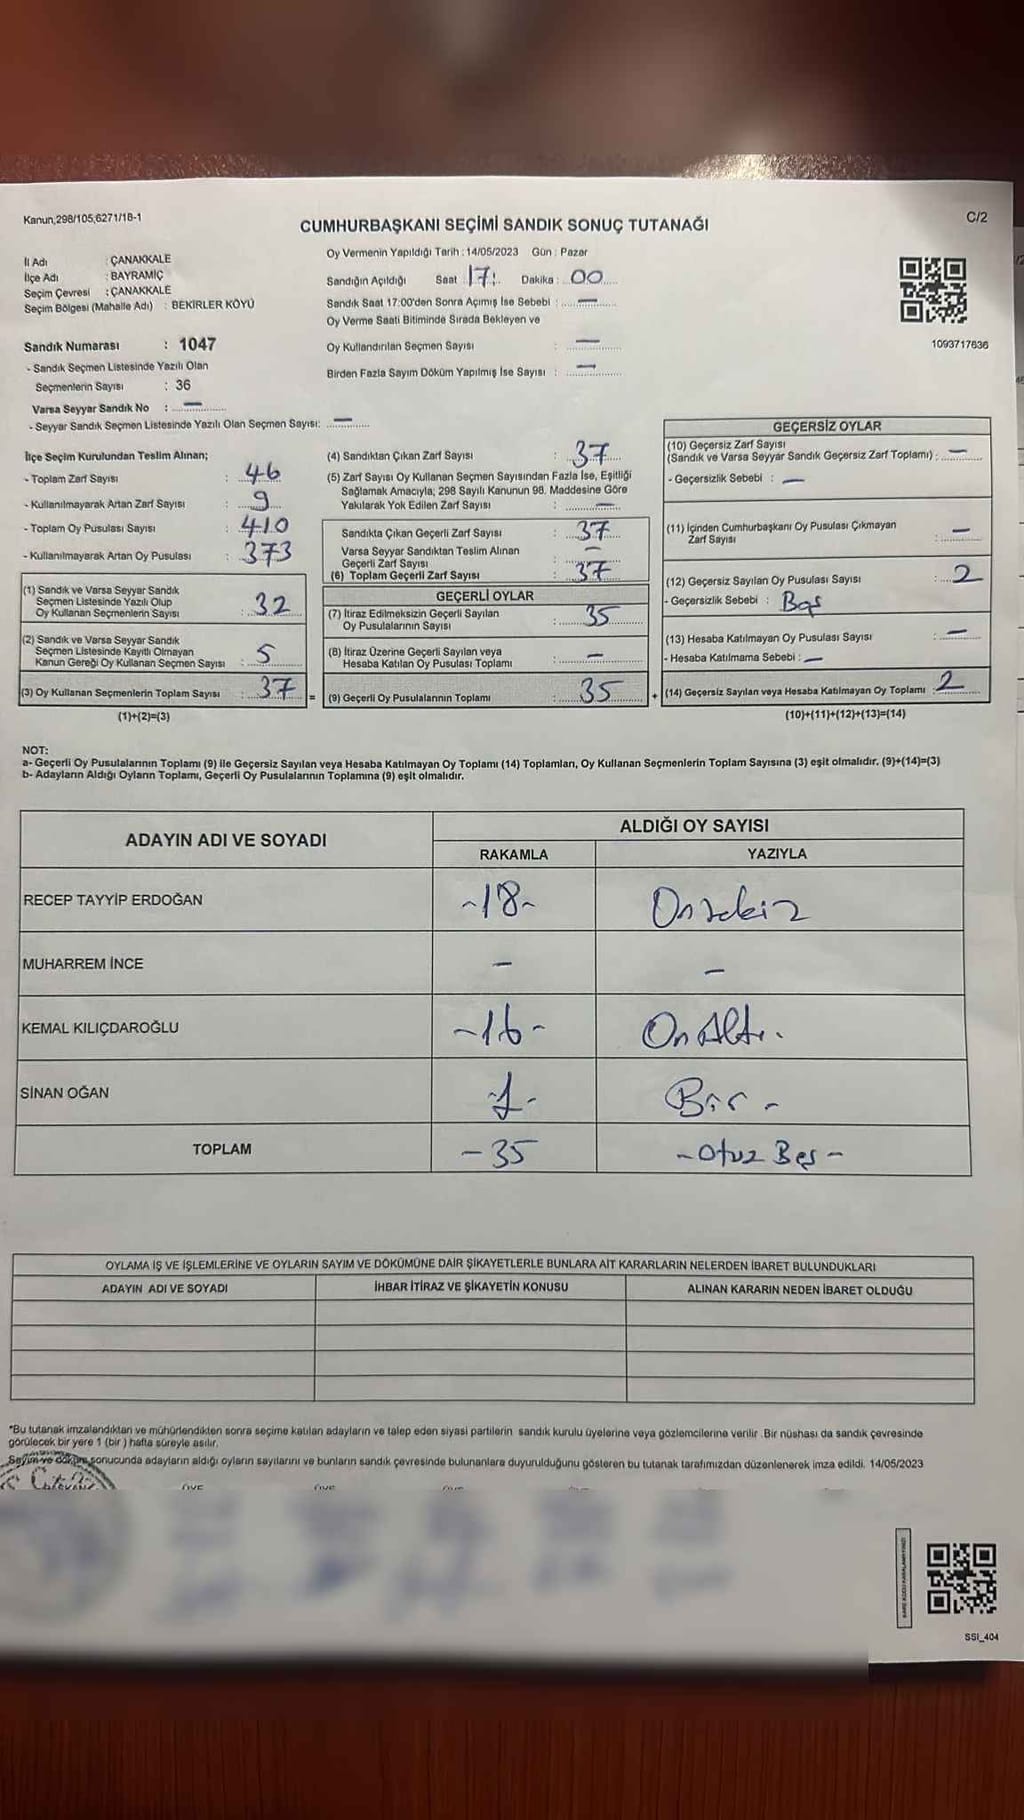 Kanun,298/105,6271/18-1
C/2
CUMHURBAŞKANI SEÇİMİ SANDIK SONUÇ TUTANAĞI
İl Adı : ÇANAKKALE
İlçe Adı : BAYRAMİÇ
Seçim Çevresi : ÇANAKKALE
Seçim Bölgesi (Mahalle Adı) : BEKİRLER KÖYÜ
Oy Vermenin Yapıldığı Tarih : 14/05/2023 Gün : Pazar
Sandığın Açıldığı Saat 17: Dakika : 00
Sandık Saat 17:00'den Sonra Açımış İse Sebebi : —
Oy Verme Saati Bitiminde Sırada Bekleyen ve
Oy Kullandırılan Seçmen Sayısı : —
Birden Fazla Sayım Döküm Yapılmış İse Sayısı : —
1093717636
Sandık Numarası : 1047
- Sandık Seçmen Listesinde Yazılı Olan
Seçmenlerin Sayısı : 36
Varsa Seyyar Sandık No : —
- Seyyar Sandık Seçmen Listesinde Yazılı Olan Seçmen Sayısı: —
İlçe Seçim Kurulundan Teslim Alınan;
- Toplam Zarf Sayısı : 46
- Kullanılmayarak Artan Zarf Sayısı : 9
- Toplam Oy Pusulası Sayısı : 410
- Kullanılmayarak Artan Oy Pusulası : 373
(1) Sandık ve Varsa Seyyar Sandık
Seçmen Listesinde Yazılı Olup
Oy Kullanan Seçmenlerin Sayısı : 32
(2) Sandık ve Varsa Seyyar Sandık
Seçmen Listesinde Kayıtlı Olmayan
Kanun Gereği Oy Kullanan Seçmen Sayısı : 5
(3) Oy Kullanan Seçmenlerin Toplam Sayısı : 37 =
(1)+(2)=(3)
(4) Sandıktan Çıkan Zarf Sayısı : 37
(5) Zarf Sayısı Oy Kullanan Seçmen Sayısından Fazla İse, Eşitliği
Sağlamak Amacıyla; 298 Sayılı Kanunun 98. Maddesine Göre
Yakılarak Yok Edilen Zarf Sayısı : —
Sandıkta Çıkan Geçerli Zarf Sayısı : 37
Varsa Seyyar Sandıktan Teslim Alınan
Geçerli Zarf Sayısı : —
(6) Toplam Geçerli Zarf Sayısı : 37
GEÇERLİ OYLAR
(7) İtiraz Edilmeksizin Geçerli Sayılan
Oy Pusulalarının Sayısı : 35
(8) İtiraz Üzerine Geçerli Sayılan veya
Hesaba Katılan Oy Pusulası Toplamı : —
(9) Geçerli Oy Pusulalarının Toplamı : 35 +
GEÇERSİZ OYLAR
(10) Geçersiz Zarf Sayısı
(Sandık ve Varsa Seyyar Sandık Geçersiz Zarf Toplamı) : —
- Geçersizlik Sebebi : —
(11) İçinden Cumhurbaşkanı Oy Pusulası Çıkmayan
Zarf Sayısı : —
(12) Geçersiz Sayılan Oy Pusulası Sayısı : 2
- Geçersizlik Sebebi : Boş
(13) Hesaba Katılmayan Oy Pusulası Sayısı : —
- Hesaba Katılmama Sebebi : —
(14) Geçersiz Sayılan veya Hesaba Katılmayan Oy Toplamı : 2
(10)+(11)+(12)+(13)=(14)
NOT:
a- Geçerli Oy Pusulalarının Toplamı (9) ile Geçersiz Sayılan veya Hesaba Katılmayan Oy Toplamı (14) Toplamları, Oy Kullanan Seçmenlerin Toplam Sayısına (3) eşit olmalıdır. (9)+(14)=(3)
b- Adayların Aldığı Oyların Toplamı, Geçerli Oy Pusulalarının Toplamına (9) eşit olmalıdır.
ADAYIN ADI VE SOYADI
ALDIĞI OY SAYISI
RAKAMLA YAZIYLA
RECEP TAYYİP ERDOĞAN -18- Onsekiz
MUHARREM İNCE — —
KEMAL KILIÇDAROĞLU -16- On Altı.
SİNAN OĞAN -1- Bir -
TOPLAM -35 -Otuz Beş-
OYLAMA İŞ VE İŞLEMLERİNE VE OYLARIN SAYIM VE DÖKÜMÜNE DAİR ŞİKAYETLERLE BUNLARA AİT KARARLARIN NELERDEN İBARET BULUNDUKLARI
ADAYIN ADI VE SOYADI İHBAR İTİRAZ VE ŞİKAYETİN KONUSU ALINAN KARARIN NEDEN İBARET OLDUĞU
*Bu tutanak imzalandıktan ve mühürlendikten sonra seçime katılan adayların ve talep eden siyasi partilerin sandık kurulu üyelerine veya gözlemcilerine verilir .Bir nüshası da sandık çevresinde
görülecek bir yere 1 (bir ) hafta süreyle asılır.
Sayım ve döküm sonucunda adayların aldığı oyların sayılarını ve bunların sandık çevresinde bulunanlara duyurulduğunu gösteren bu tutanak tarafımızdan düzenlenerek imza edildi. 14/05/2023
SSI_404